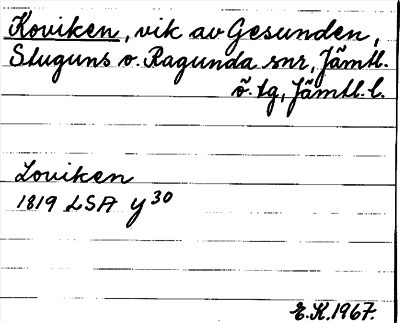 Koviken, vik av Gesunden,
Stuguns o. Ragunda snr, Jämtl.
ö. tg, Jämtl. l.
Loviken
1819 LSA Y30
E.K. 1967.